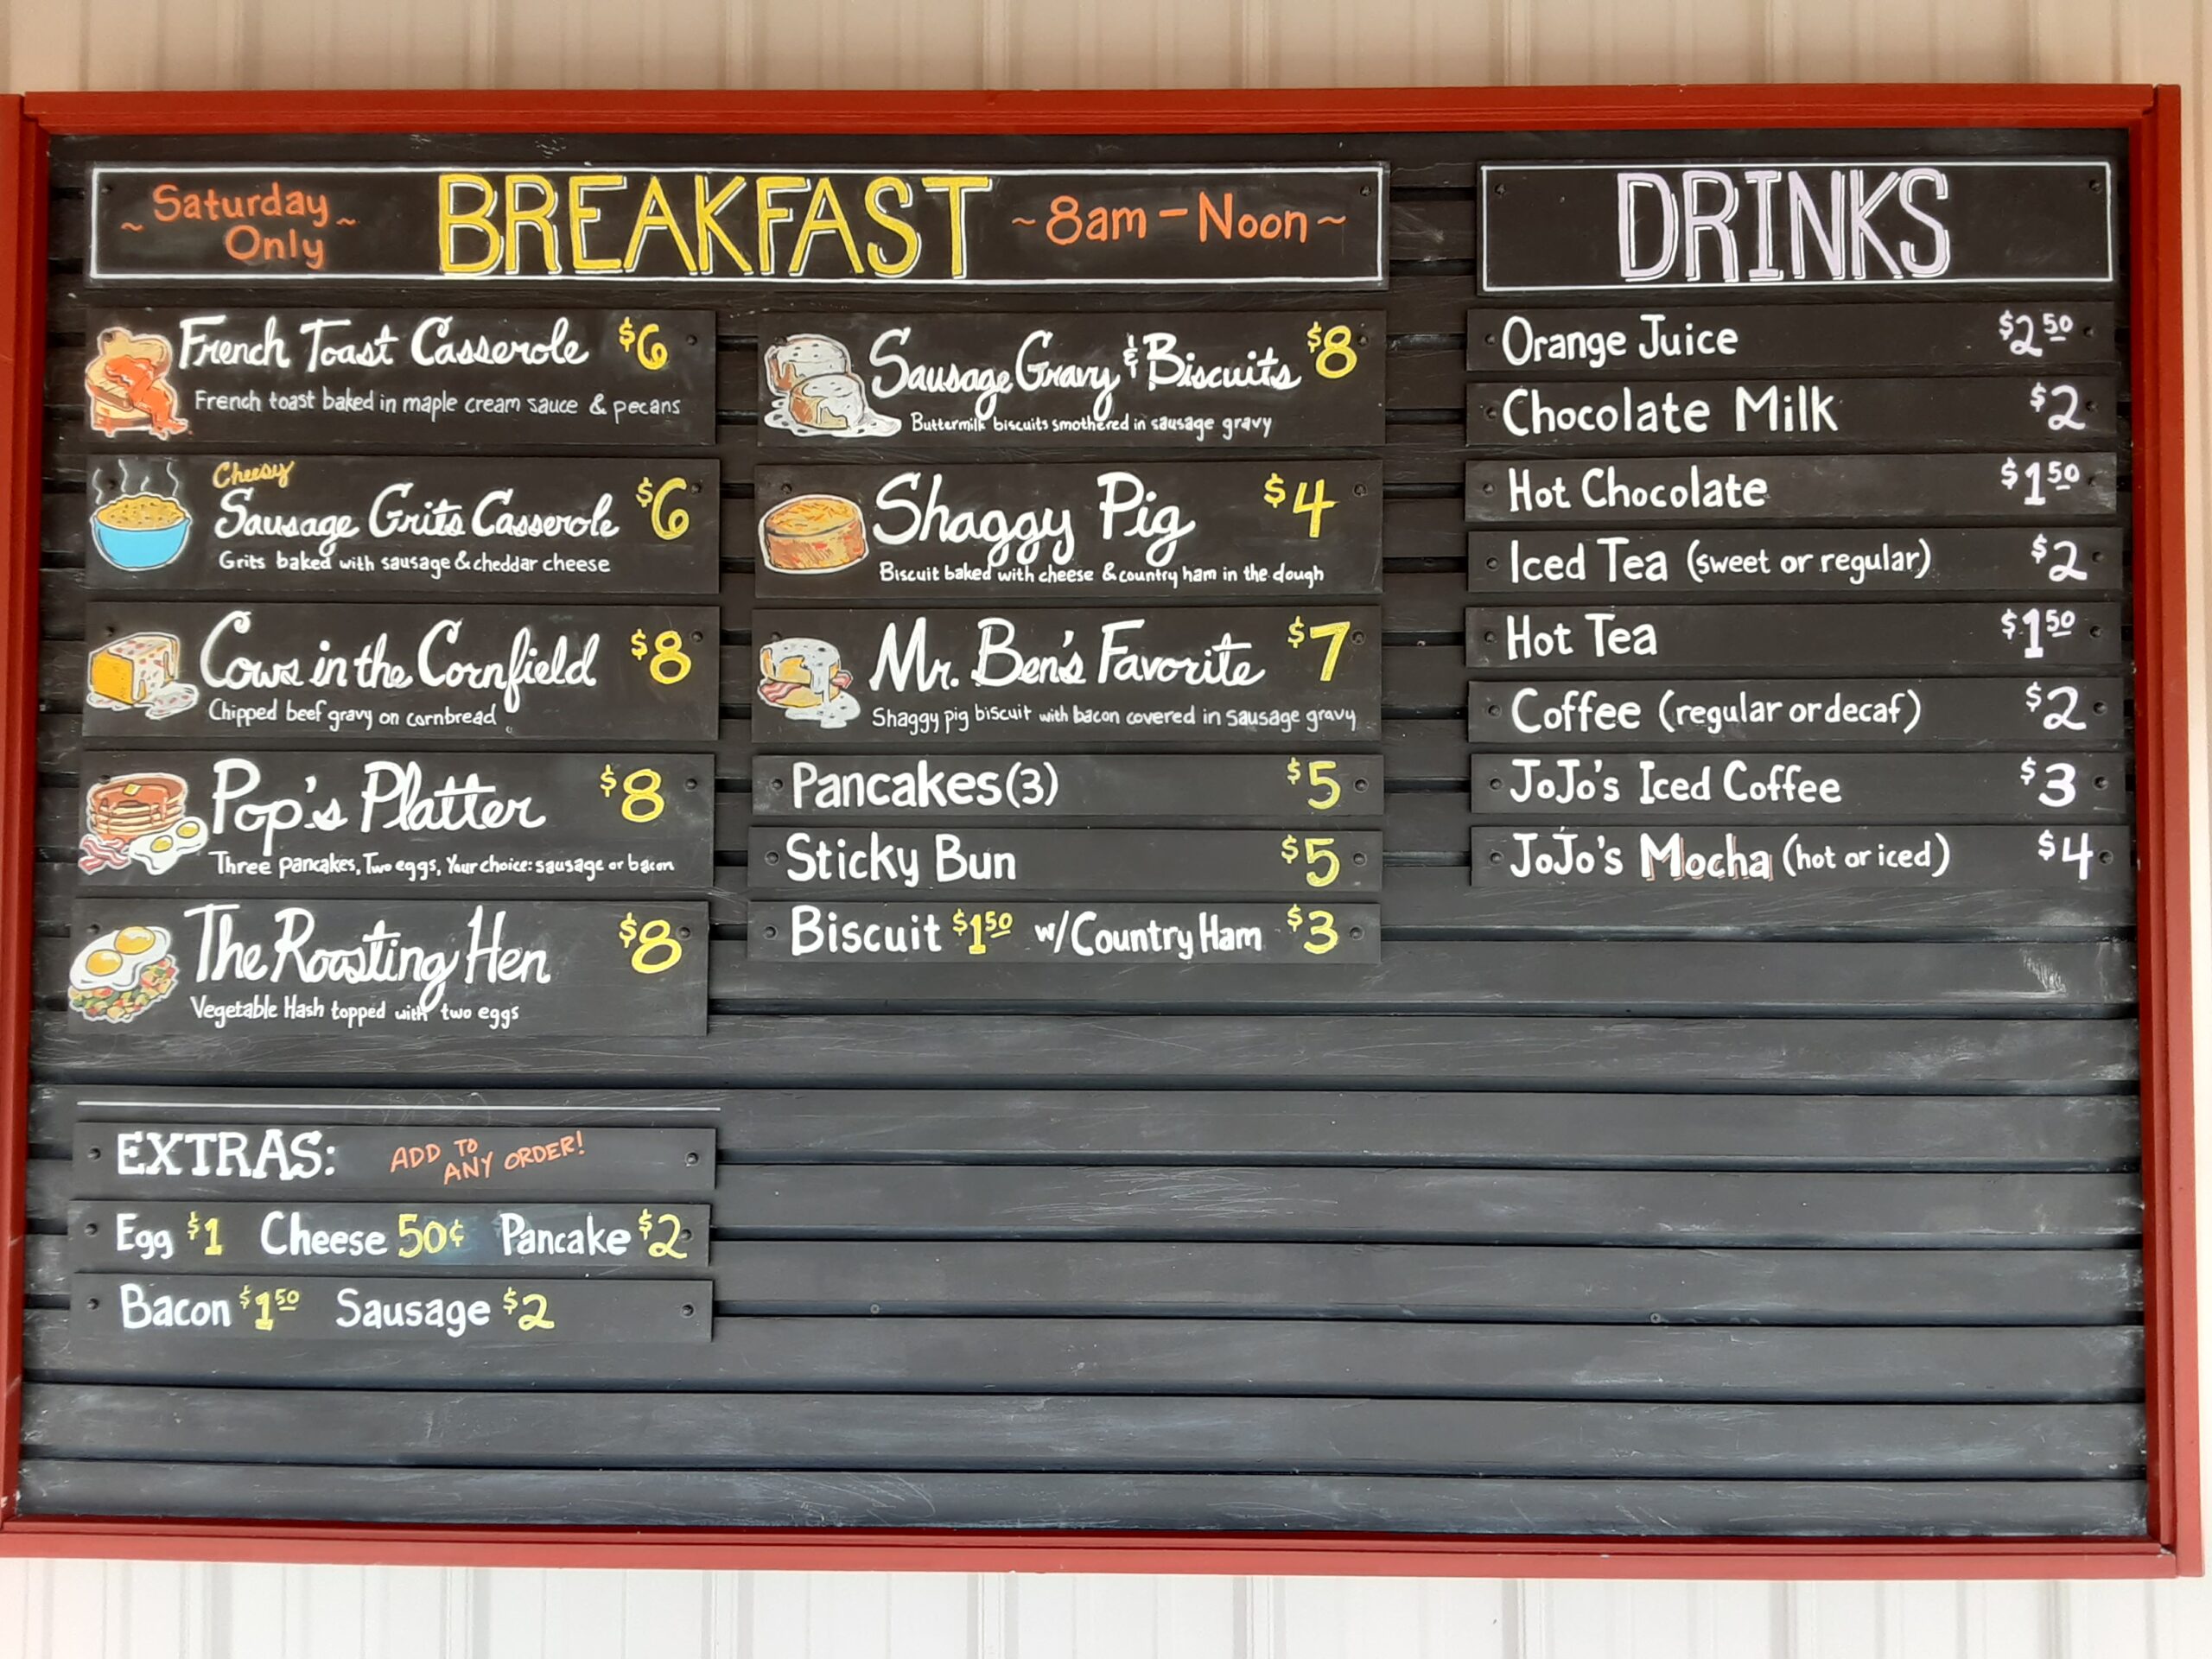 ~ Saturday Only ~ BREAKFAST ~ 8am - Noon ~
French Toast Casserole $6
French toast baked in maple cream sauce & pecans
Cheesy
Sausage Grits Casserole $6
Grits baked with sausage & cheddar cheese
Cows in the Cornfield $8
Chipped beef gravy on cornbread
Pop's Platter $8
Three pancakes, Two eggs, Your choice: sausage or bacon
The Roosting Hen $8
Vegetable Hash topped with two eggs
Sausage Gravy & Biscuits $8
Buttermilk biscuits smothered in sausage gravy
Shaggy Pig $4
Biscuit baked with cheese & country ham in the dough
Mr. Ben's Favorite $7
Shaggy pig biscuit with bacon covered in sausage gravy
Pancakes (3) $5
Sticky Bun $5
Biscuit $1.50 w/ Country Ham $3
EXTRAS: ADD TO ANY ORDER!
Egg $1 Cheese 50¢ Pancake $2
Bacon $1.50 Sausage $2
DRINKS
Orange Juice $2.50
Chocolate Milk $2
Hot Chocolate $1.50
Iced Tea (sweet or regular) $2
Hot Tea $1.50
Coffee (regular or decaf) $2
JoJo's Iced Coffee $3
JoJo's Mocha (hot or iced) $4